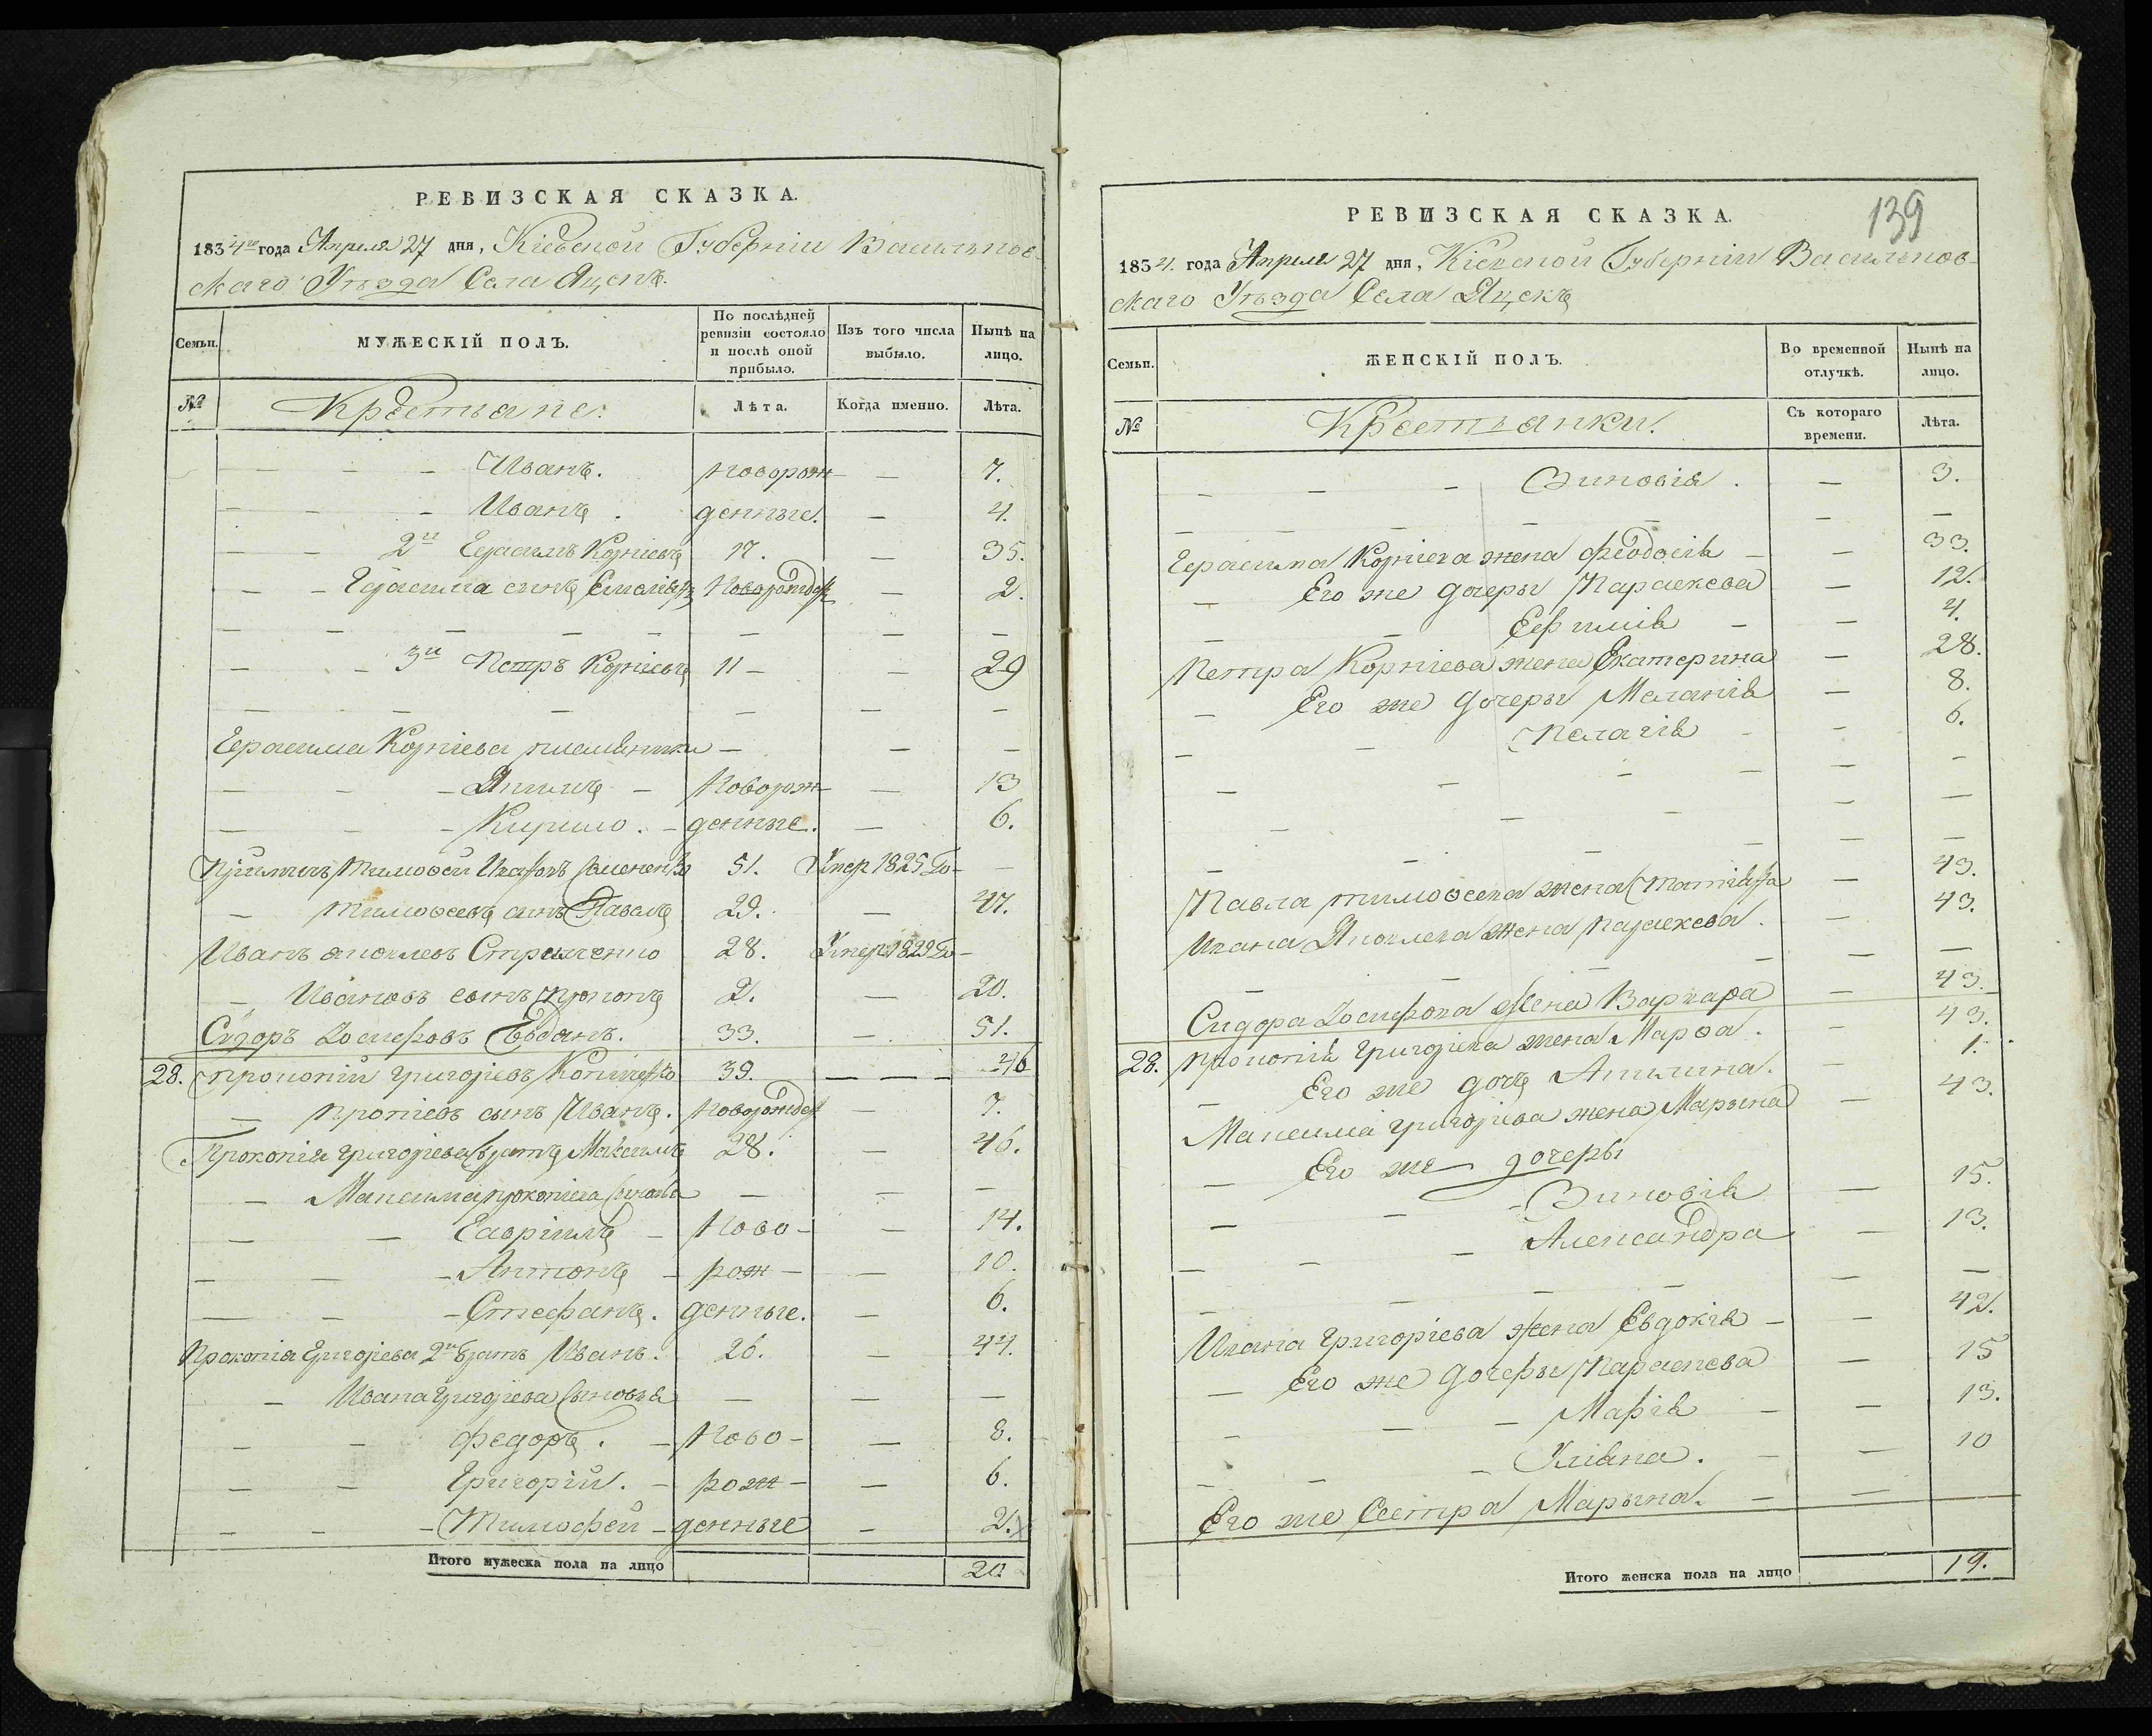 РЕВИЗСКАЯ СКАЗКА.
1834го года Апреля 27 дня, Кіевской Губерніи Васильков-
скаго Уѣзда Села Яцекъ.
Семьи.
МУЖЕСКІЙ ПОЛЪ.
По послѣдней ревизіи состояло и послѣ оной прибыло.
Изъ того числа выбыло.
Нынѣ на лицо.
№
Крестьяне.
Лѣта.
Когда именно.
Лѣта.
— — — Иванъ. новорож- — 7.
— — — Иванъ. денные. — 4.
— — 2й Герасимъ Корніевъ 17. — 35.
— — Герасима сынъ Новорожден — 2.
— — — — — — — —
— — 3й Петръ Корніевъ 11 — — 29
— — — — — — —
Герасима Корніева племянники — — —
— — — Якимъ — Новорож- — 13
— — — Кирило. — денные. — 6.
Тимофей 51. Умер 1825 Го- —
— Тимофеевъ сынъ Павелъ 29. — 47.
Иванъ Яковлевъ 28. Умер 1829 Го- —
— Ивановъ сынъ Прокопъ 2. — 20.
Сидоръ Іосифовъ 33. — 51.
28. Прокопій Григоріевъ 39. — — — 46
— Сынъ Иванъ. Новорожден — 7.
Прокопія Григоріева братъ Максимъ 28. — 46.
— Максима Прокопіева сыновья — — —
— — Гавріилъ — Ново- — 14.
— — — Антонъ — рож- — 10.
— — — Стефанъ. денные. — 6.
Прокопія Григоріева 2й братъ Иванъ. 26. — 44.
— Ивана Григоріева сыновья — — —
— — Федоръ. — Ново- — 8.
— — Григорій. — рож- — 6.
— — — Тимофей — денные — 2.
Итого мужеска пола на лицо 20.
139
РЕВИЗСКАЯ СКАЗКА.
1834. года Апреля 27 дня, Кіевской Губерніи Васильков-
скаго Уѣзда Села Яцекъ
Семьи.
ЖЕНСКІЙ ПОЛЪ.
Во временной отлучкѣ.
Нынѣ на лицо.
№
Крестьянки.
Съ котораго времени.
Лѣта.
— — — Зиновія. — 3.
— — — — — —
Герасима Корніева жена Феодосія — — 33.
— Его же дочеры Параскева — 12.
— — Ефимія — — 4.
Петра Корніева жена Екатерина — 28.
— Его же дочеры Меланія — 8.
— — Пелагія — — 6.
— — — — — —
— — — — —
— — — — —
Павла Тимофеева жена — 43.
Ивана Яковлева жена Параскева. — 43.
— — — —
Сидора Іосифова жена Варвара — 43.
28. Прокопія Григоріева жена Марфа. — 43.
— Его же дочь Акилина. — 1.
Максима Григоріева жена Марына — 43.
— Его же дочеры
— — — Зиновія — 15.
— — — Александра — 13.
— — — — —
Ивана Григоріева жена Евдокія — — 42.
— Его же дочеры Параскева — 15
— — — Марія — — 13.
— — — Уліяна. — — 10
Его же Сестра Марына. — —
Итого женска пола на лицо 19.